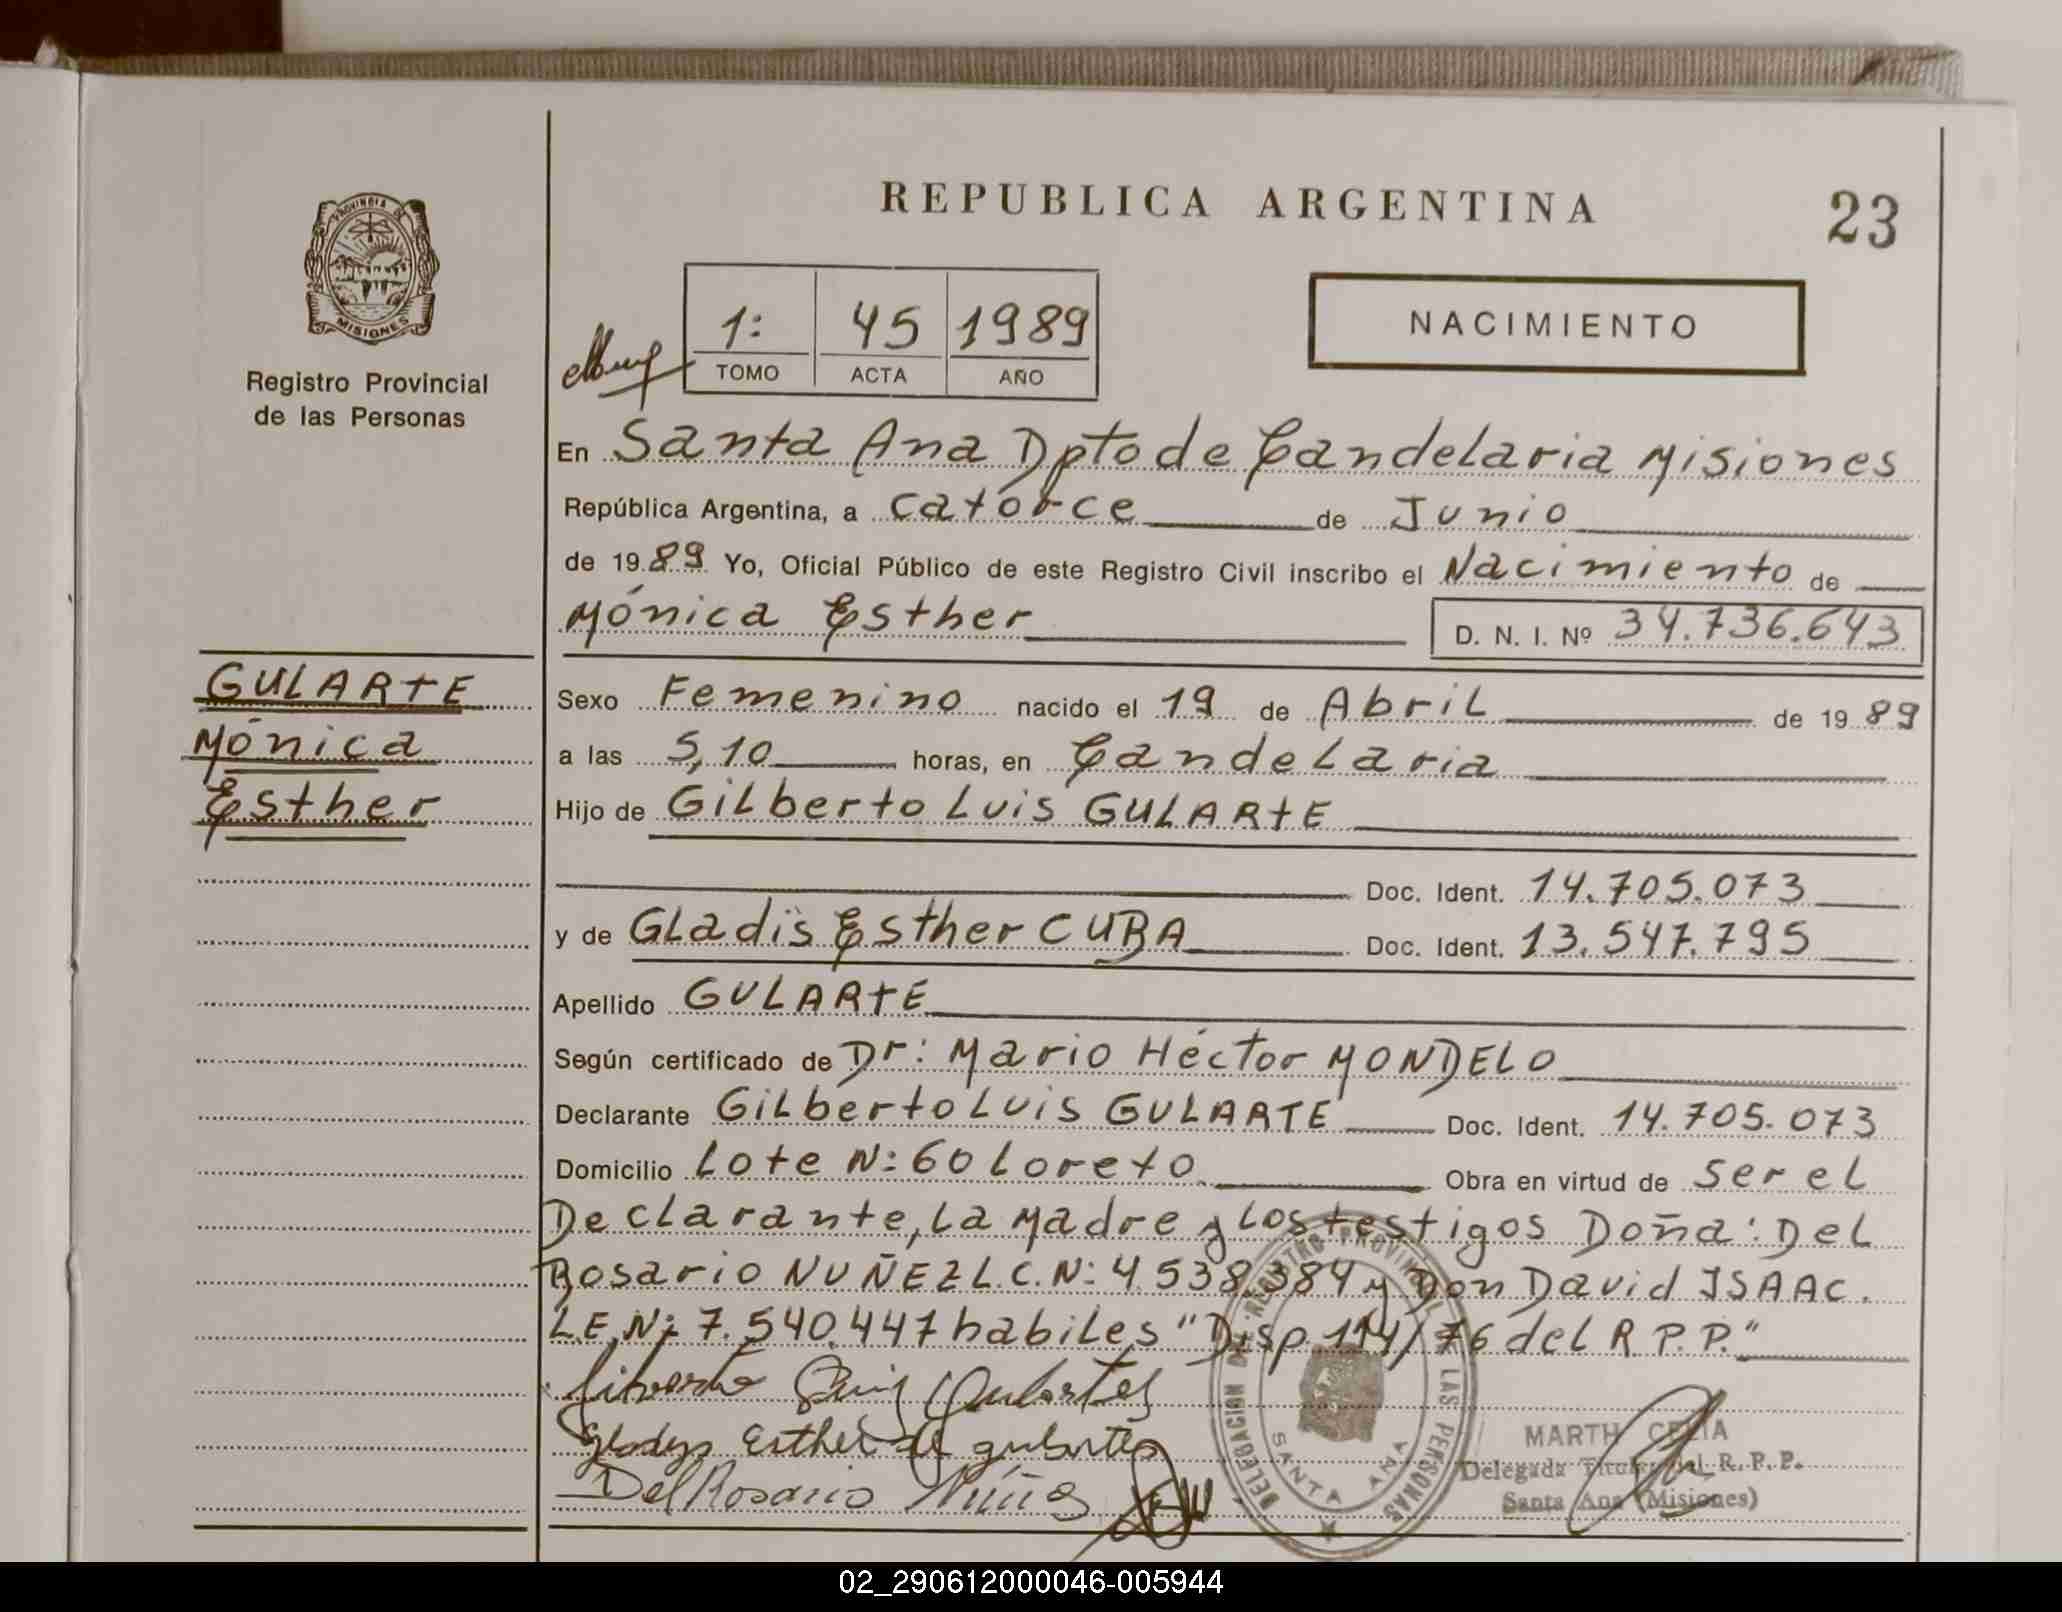 REPUBLICA ARGENTINA
23
PROVINCIA DE
MISIONES
Registro Provincial
de las Personas
1: 45 1989
TOMO ACTA AÑO
NACIMIENTO
En Santa Ana Dpto de Candelaria Misiones
República Argentina, a catorce de Junio
de 1989 Yo, Oficial Público de este Registro Civil inscribo el Nacimiento de
Mónica Esther D. N. I. Nº 34.736.643
GULARTE
Mónica
Esther
Sexo Femenino nacido el 19 de Abril de 1989
a las 5,10 horas, en Candelaria
Hijo de Gilberto Luis GULARTE
Doc. Ident. 14.705.073
y de Gladis Esther CUBA Doc. Ident. 13.547.795
Apellido GULARTE
Según certificado de Dr: Mario Héctor MONDELO
Declarante Gilberto Luis GULARTE Doc. Ident. 14.705.073
Domicilio Lote N: 60 Loreto Obra en virtud de ser el
Declarante, la Madre y los testigos Doña: Del
Rosario NUÑEZ L.C.N: 4.538.384 y Don David ISAAC.
L.E.N: 7.540.447 habiles "Disp. 114/76 del R.P.P."
Gladys Esther de gularte
Del Rosario Núñes
DELEGACION DEL REGISTRO PROVINCIAL DE LAS PERSONAS
SANTA ANA
MARTH CELIA
Delegada Titular del R. P. P.
Santa Ana (Misiones)
02_290612000046-005944